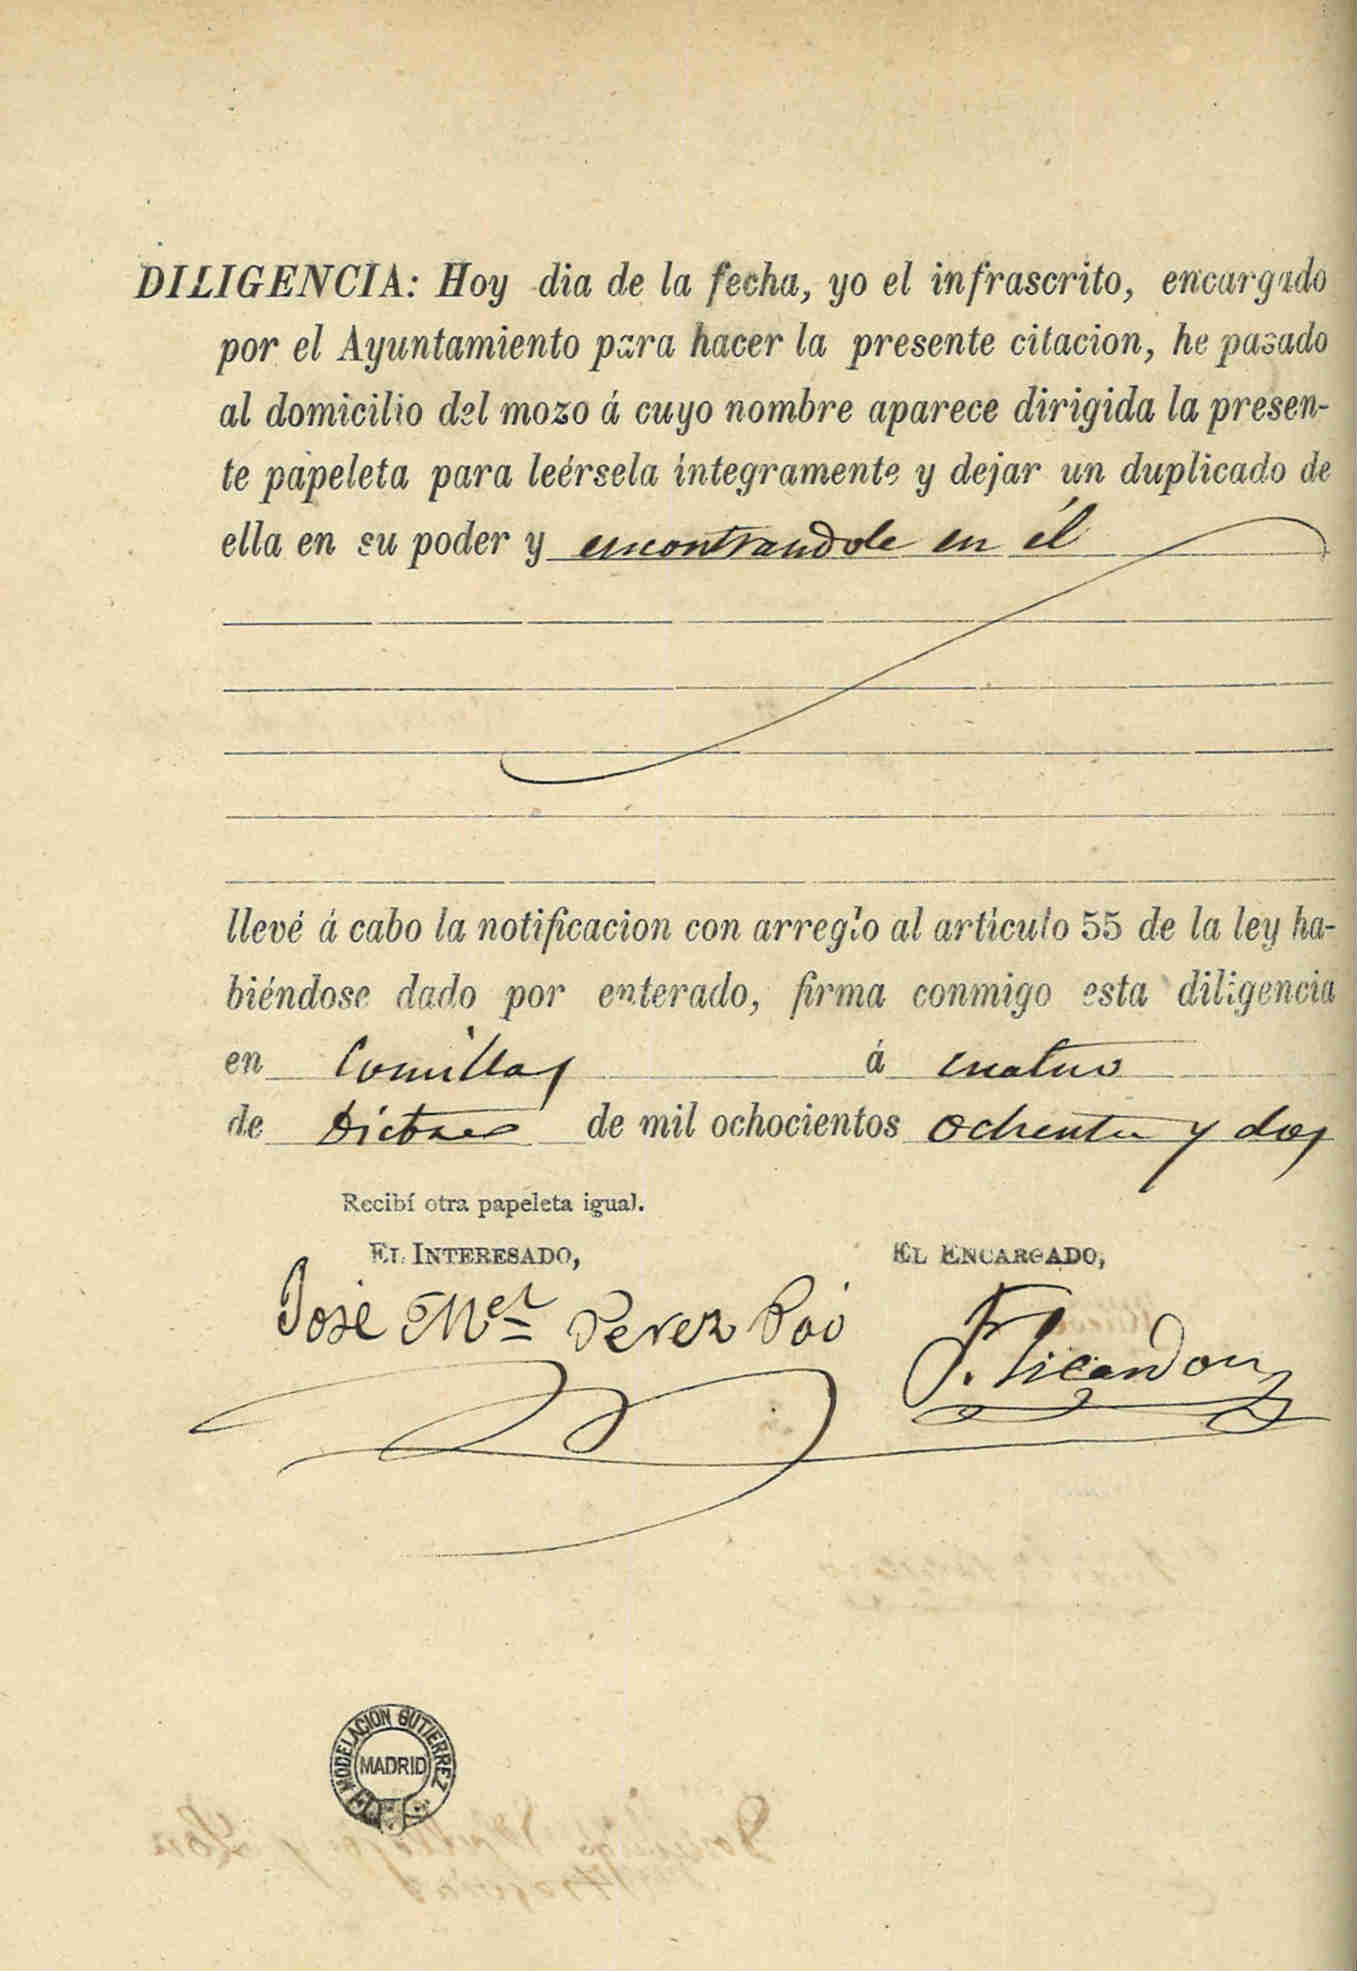 DILIGENCIA: Hoy dia de la fecha, yo el infrascrito, encargado
por el Ayuntamiento para hacer la presente citacion, he pasado
al domicilio del mozo á cuyo nombre aparece dirigida la presen-
te papeleta para leérsela íntegramente y dejar un duplicado de
ella en su poder y encontrandole en él
llevé á cabo la notificacion con arreglo al artículo 55 de la ley ha-
biéndose dado por enterado, firma conmigo esta diligencia
en Comillas á cuatro
de Dicbre de mil ochocientos ochenta y dos
Recibí otra papeleta igual.
EL INTERESADO, EL ENCARGADO,
José Mel Perez F.
MODELACION GUTIERREZ
MADRID